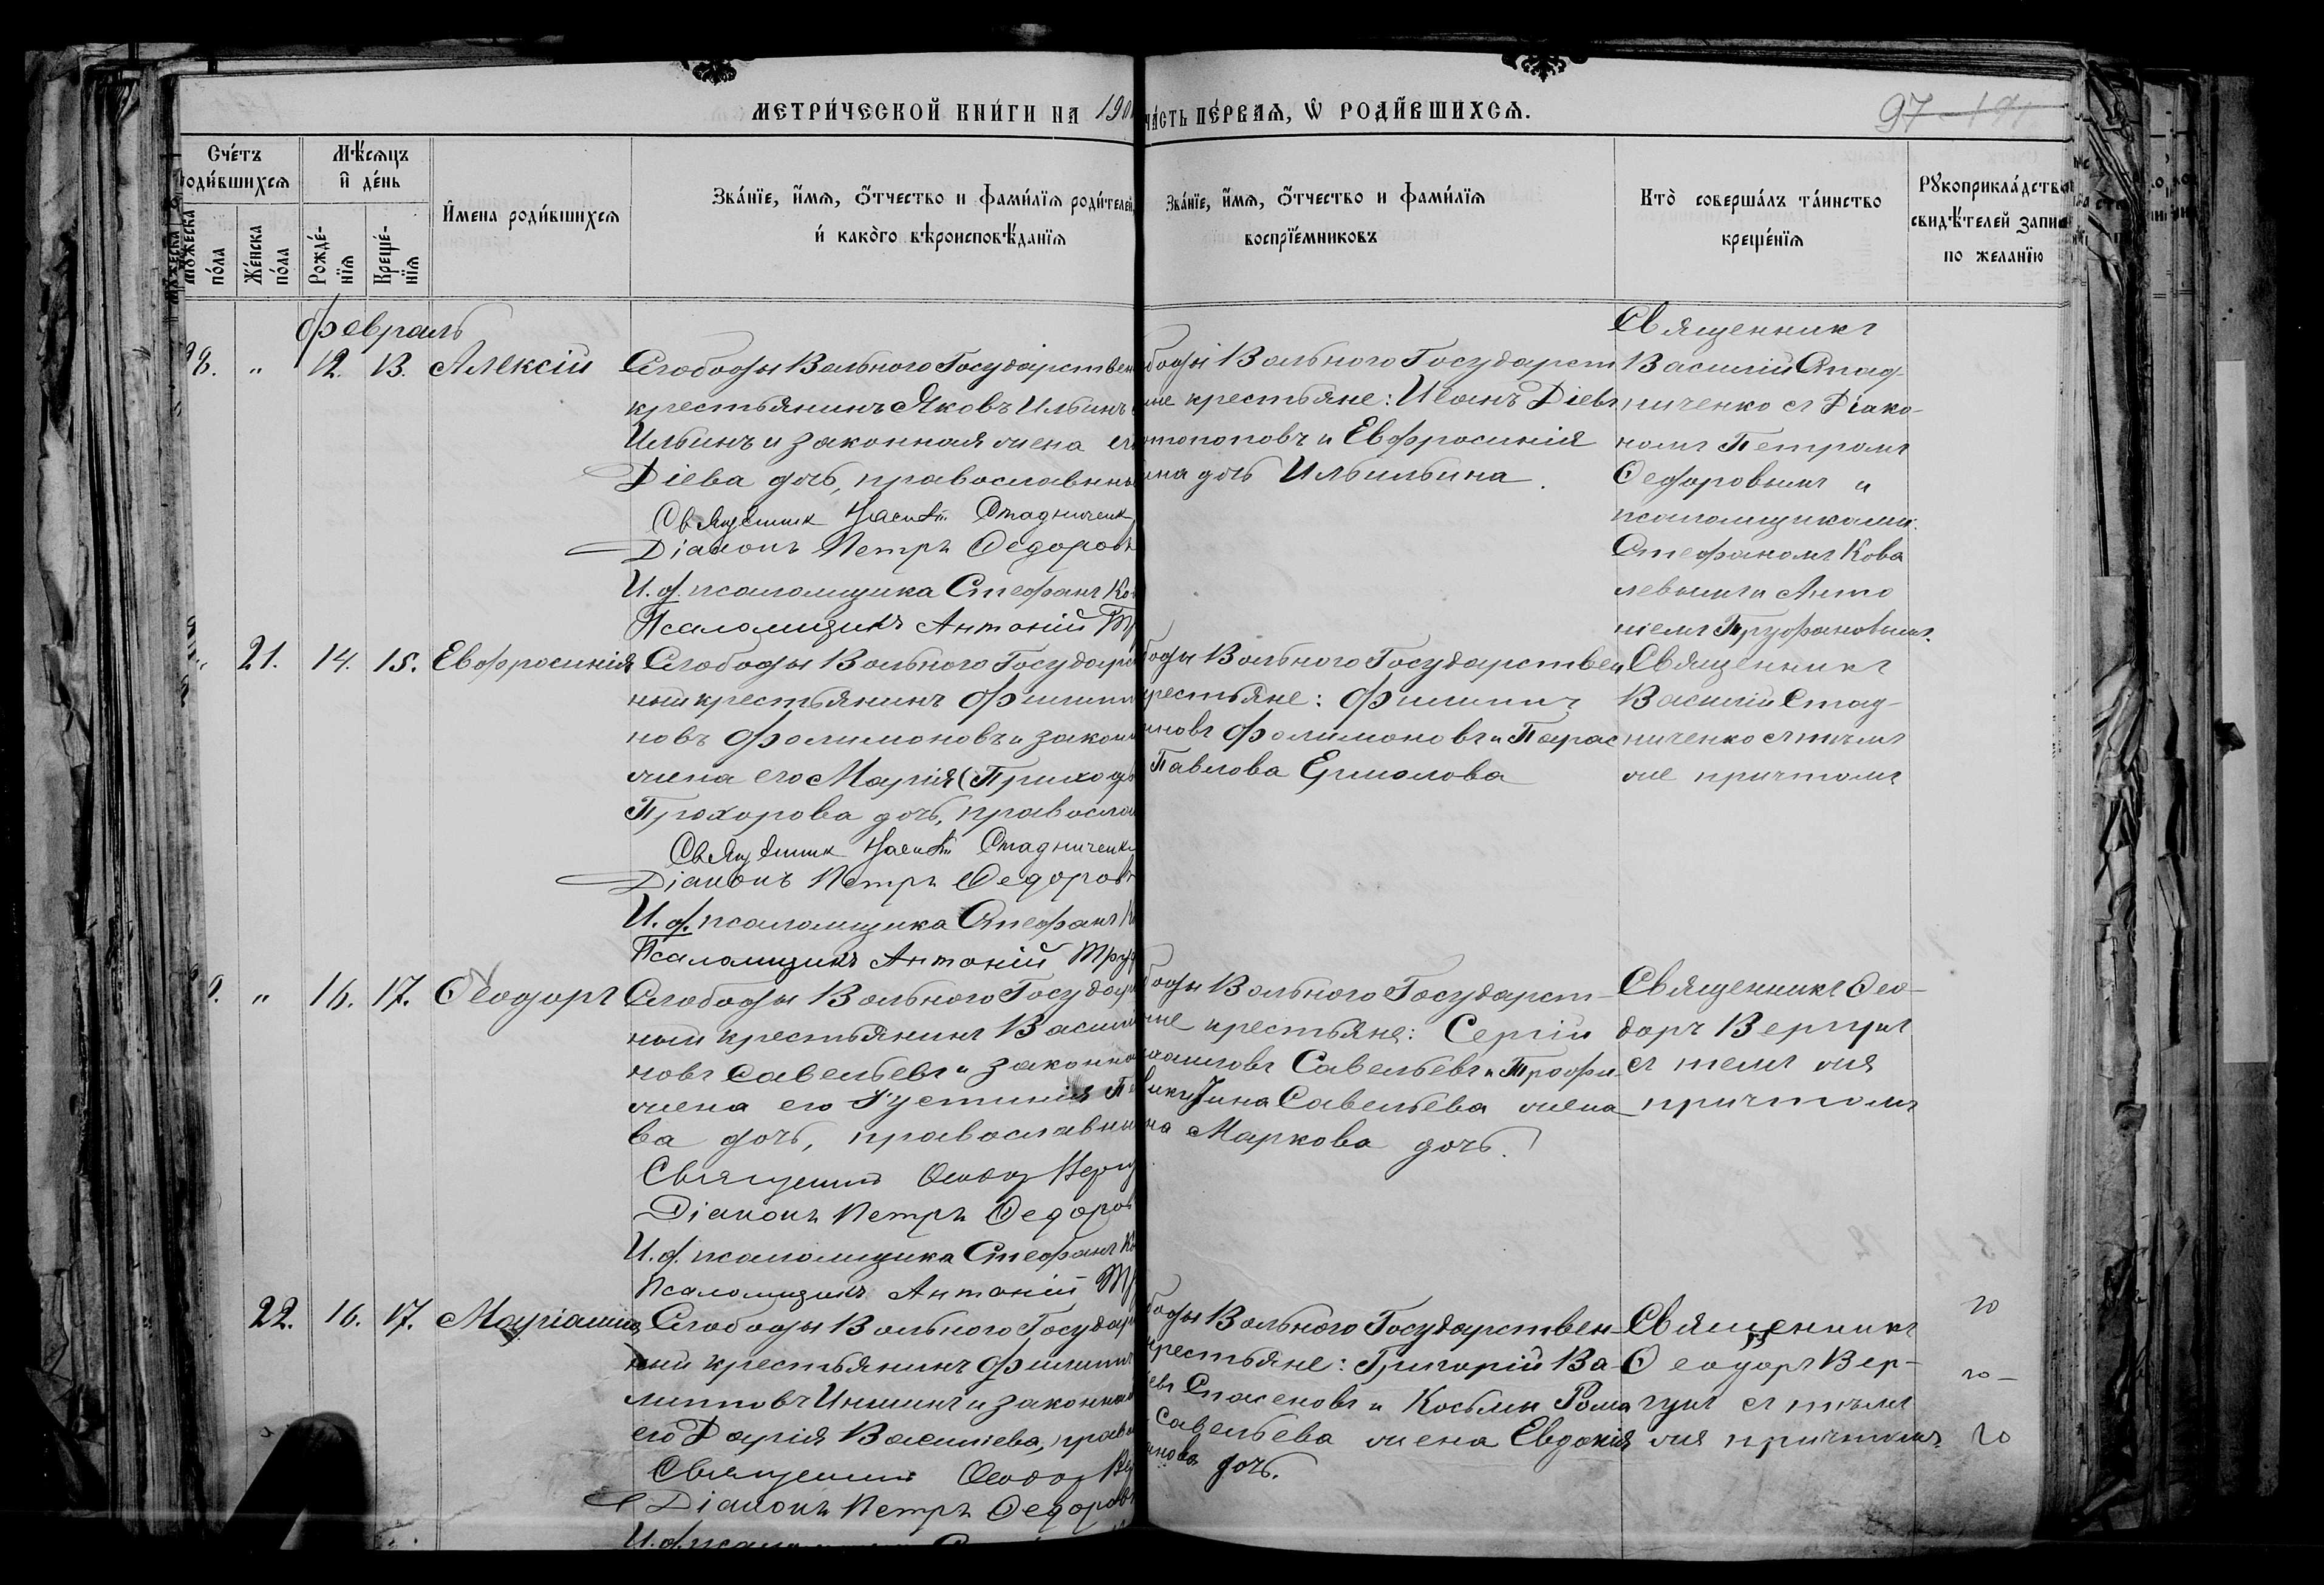 МЕТРИ́ЧЕСКОЙ КНИ́ГИ НА 190
ЧА́СТЬ ПЕ́РВАЯ, Ѡ РОДИ́ВШИХСЯ.
97
Сче́тъ
родившихся
Мѣ́сяцъ
и де́нь
Мꙋжеска
по́ла
Же́нска
по́ла
Рожде́-
нїя
Креще́-
нїя
И́мена роди́вшихся
Зва́нїе, и́мя, ѻ҆́тчество и фами́лїя роди́телей,
и҆ како́го вѣроисповѣ́данїя
Зва́нїе, и́мя, ѻ҆́тчество и фами́лїя
воспрїе́мниковъ
Кто̀ соверша́лъ та́инство
креще́нїя
Рꙋкоприкла́дство
свидѣ́телей записи
по жела́нїю
Февраль
8. " 12. 13. Алексій
Слободы Вольного Государствен
крестьянинъ Яковъ Ильинъ
Ильинъ и законная жена его
Діева дочь, православные
Священник Василій Стадниченк
Діаконъ Петръ Ѳедоровъ
И. д. псаломщика Стефанъ Ко
Псаломщикъ Антоній Тр
боды Вольного Государст
ные крестьяне: Иванъ Діевъ
топоповъ и Евфросинія
ина дочь Ильильина.
Священникъ
Василій Стад-
ниченко съ Діако-
номъ Петромъ
Ѳедоровымъ и
псаломщиками:
Стефаномъ Кова
левымъ и Анто
ніемъ Труфановымъ.
" 21. 14. 15. Евфросинія
Слободы Вольного Государс
ный крестьянинъ Филипп
новъ Фолимоновъ и закон
жена его Марія (Приходь
Прохорова дочь, правосла
Священник Василій Стадниченк
Діаконъ Петръ Ѳедоровъ
И. д. псаломщика Стефанъ К
Псаломщикъ Антоній Труф
боды Вольного Государствен
крестьяне: Филиппъ
иновъ Фолимоновъ и Парас
Павлова Ермолова
Священникъ
Василій Стад-
ниченко съ тѣмъ
же причтомъ
9. " 16. 17. Ѳеодоръ
Слободы Вольного Государ
ный крестьянинъ Васили
новъ Савельевъ и законна
жена его Іустинія Па
ва дочь, православны
Священникъ Ѳеодоръ Верг
Діаконъ Петръ Ѳедоров
И. д. псаломщика Стефанъ Ко
Псаломщикъ Антоній Тр
боды Вольного Государст-
ные крестьяне: Сергій
Савельевъ и Трофи
Савельева жена
на Маркова дочь.
Священникъ Ѳео-
доръ Вергунъ
съ темъ жя
причтомъ
22. 16. 17. Маріамна
Слободы Вольного Государ
ный крестьянинъ Филиппъ
липповъ Иншинъ и законная
его Дарія Василіева, право
Священникъ Ѳеодоръ Ве
Діаконъ Петръ Ѳедоровъ
боды Вольного Государствен-
крестьяне: Григорій Ва-
евъ Спасеновъ и Косьмы Рома
Савельева жена Евдокія
анова дочь.
Священникъ
Ѳеодоръ Вер-
гунъ съ тѣмъ
жя причтомъ.
20
20 -
20